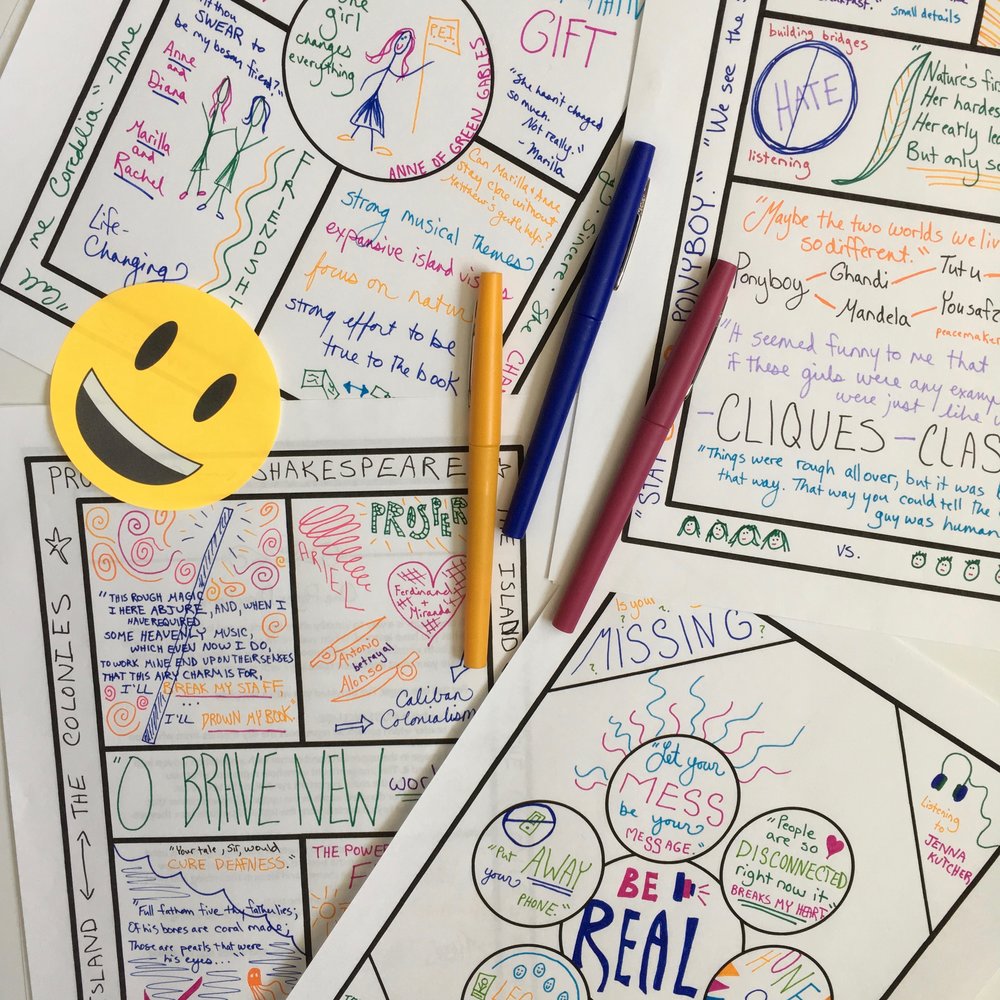 SWEAR to
be my bosom friend?"
Anne
and
Diana
Marilla
and
Rachel
Life-
Changing
FRIENDSHI
"Call
me Cordelia." -Anne
girl
changes
everything
P.E.I.
ANNE OF GREEN GABLES
GIFT
"She hasn't changed
so much.
Not really."
- Marilla
Can Marilla + Anne
stay close without
Matthew's gentle help?
strong musical themes
expansive island vis
focus on natur
strong effort to be
true to the book
Sincere. She
CHA
small details
"We see the s
PONYBOY."
"STAY
building bridges
HATE
listening
Nature's firs
Her hardes
Her early lea
But only so
"Maybe the two worlds we liv
so different."
Ponyboy
Ghandi
Tutu
Mandela
Yousafz
peacemaker
"It seemed funny to me that
if these girls were any examp
were just like
-CLIQUES-CLAS
"Things were rough all over, but it was
that way. That way you could tell the
guy was human
vs.
PRO
SHAKESPEARE
THE ISLAND
ISLAND
THE COLONIES
"THIS ROUGH MAGIC
I HERE ABJURE, AND, WHEN I
HAVE REQUIRED
SOME HEAVENLY MUSIC,
WHICH EVEN NOW I DO,
TO WORK MINE END UPON THEIR SENSES
THAT THIS AIRY CHARM IS FOR,
I'LL BREAK MY STAFF,
...
I'LL DROWN MY BOOK."
PROSPER
ARIEL
Ferdinand
+
Miranda
Antonio
betrayal
Alonso
Caliban
Colonialism
"O BRAVE NEW
worl
"Your tale, sir, would
CURE DEAFNESS."
"Full fathom five thy father lies;
Of his bones are coral made;
Those are pearls that were
his eyes..."
THE POWER
F
Is your
MISSING
?
?
"Let your
MESS
be your
MESSAGE."
"Put AWAY
your
PHONE."
"People
are so
DISCONNECTED
right now it
BREAKS MY HEART
BE
REAL
HONE
Listening
to
JENNA
KUTCHER